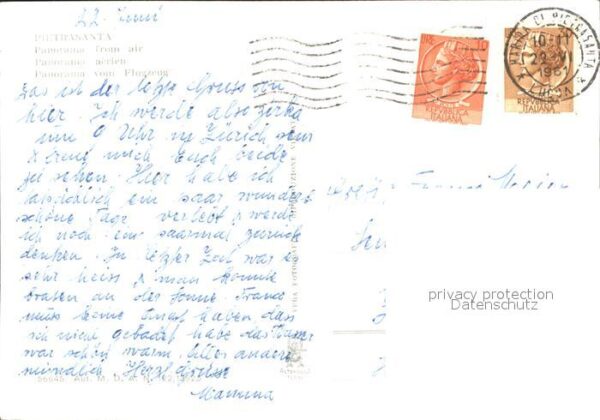 22. Juni
PIETRASANTA
Panorama from air
Panorama aérien
Panorama vom Flugzeug
Das ist der letzte Gruss von
hier. Ich werde also zirka
um 6 Uhr in Zürich sein
& freue mich Euch beide
zu sehen. Hier habe ich
tatsächlich ein paar wunder-
schöne Tage verlebt & werde
ich noch ein paarmal zurück
denken. In letzter Zeit war es
sehr heiss & man konnte
braten an der Sonne. Franz
muss keine Angst haben das
ich nicht gebadet habe das Wasser
war schön warm. Alles andere
mündlich Herzl Grüsse
Mamma
MARINA DI PIETRASANTA
LUCCA
REPUBBLICA
ITALIANA
REPUBBLICA
ITALIANA
privacy protection
Datenschutz